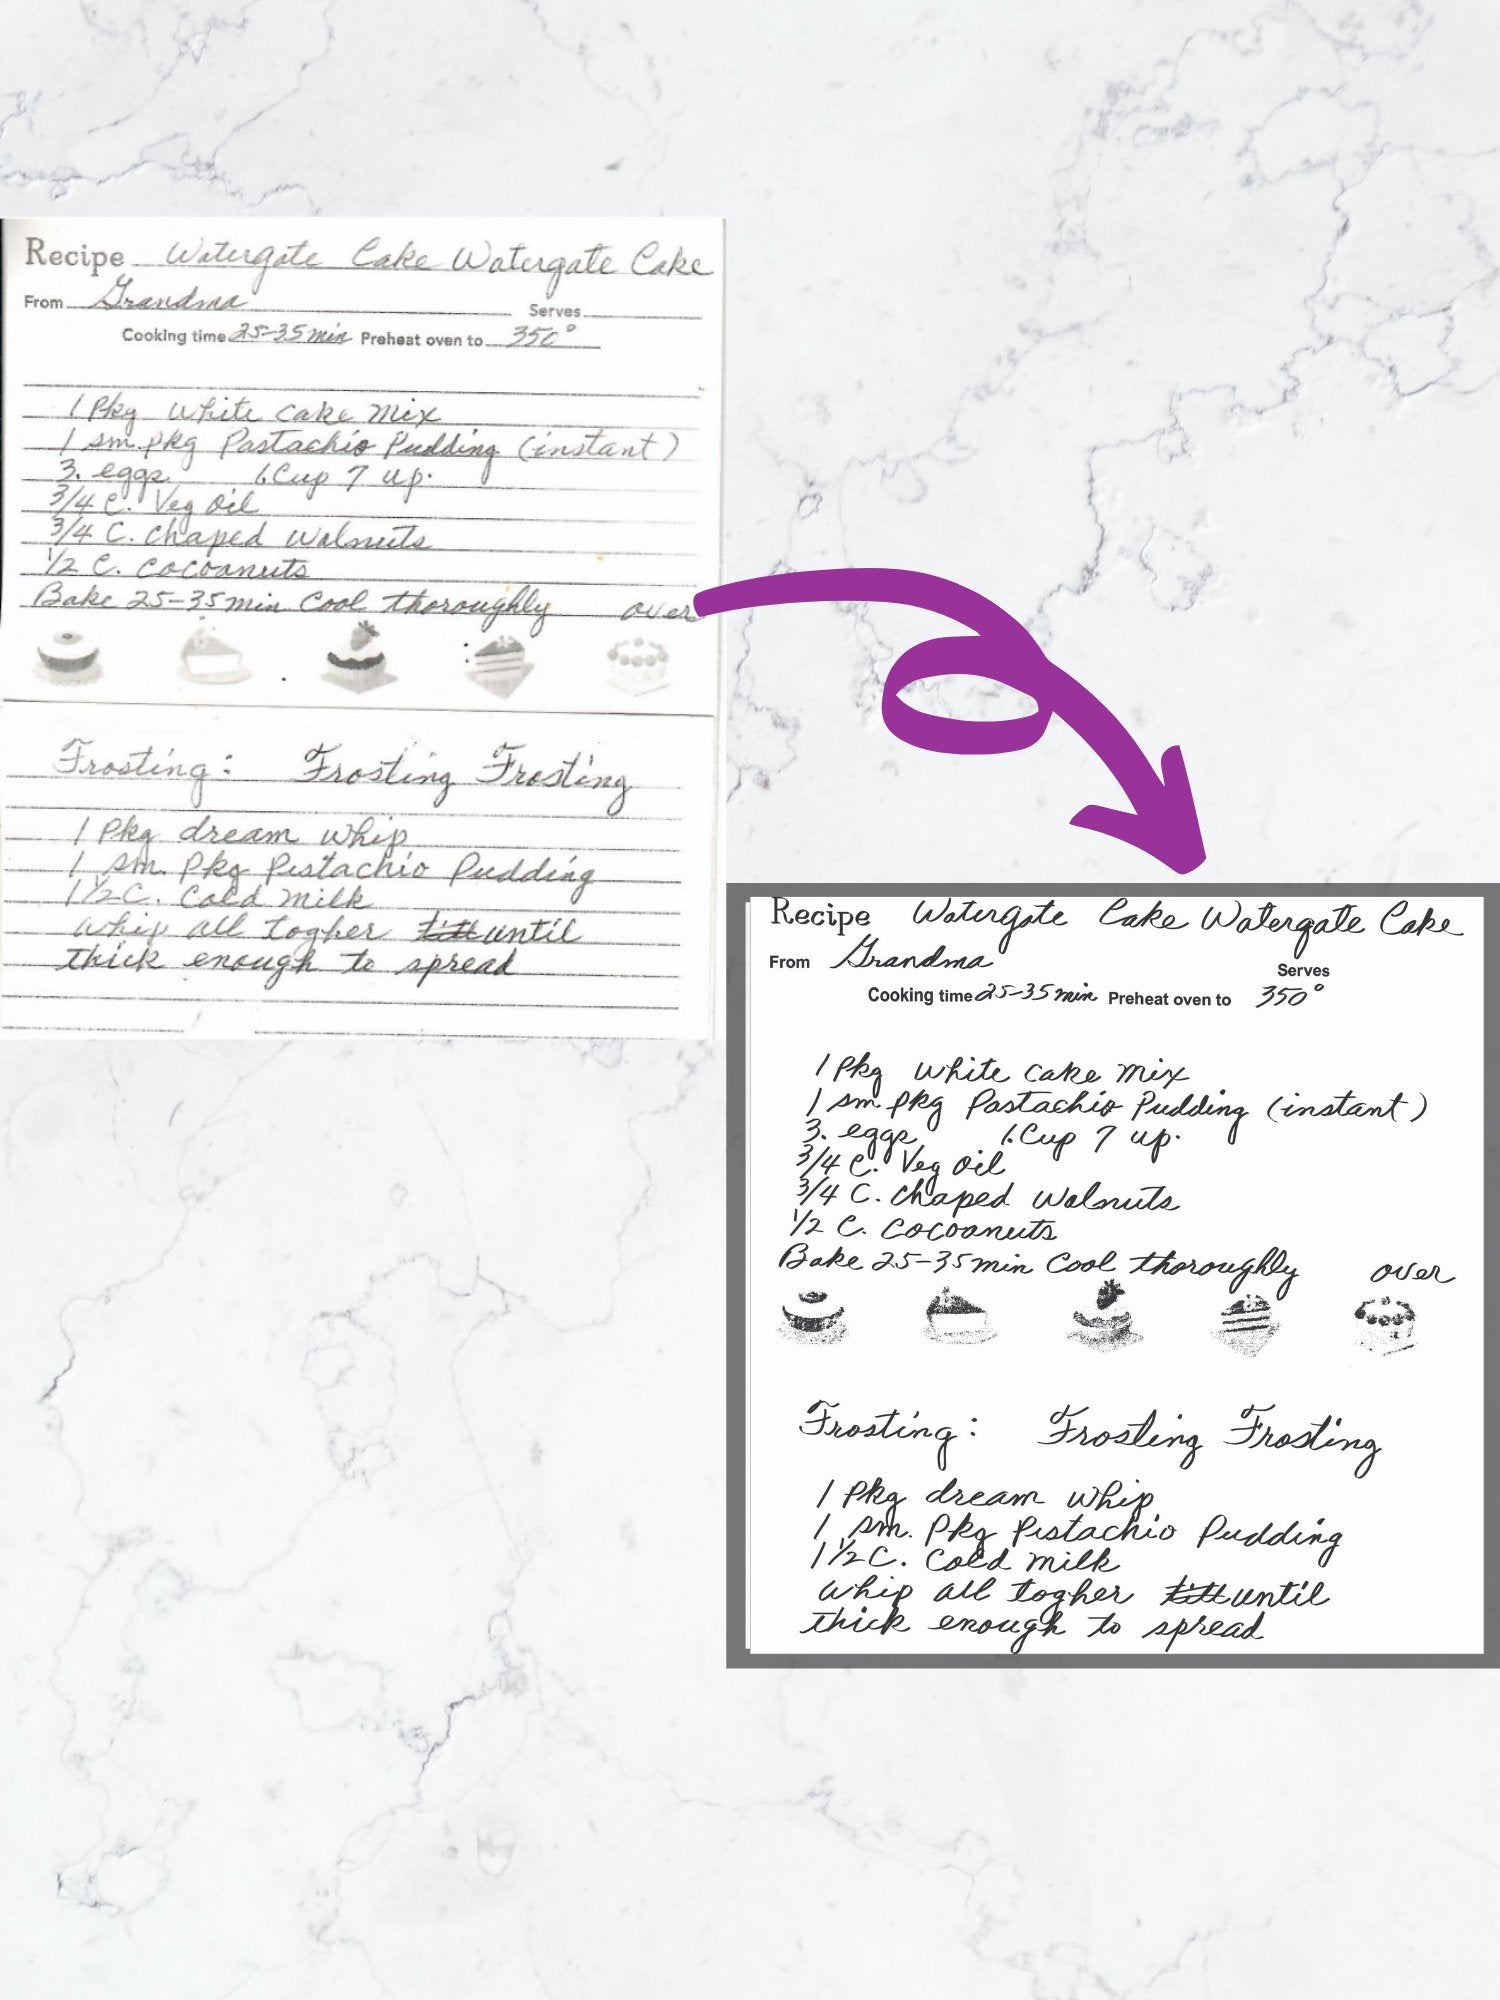 Recipe Watergate Cake Watergate Cake
From Grandma
Serves
Cooking time 25-35 min Preheat oven to 350°
1 Pkg White Cake Mix
1 sm. pkg Pastachio Pudding (instant)
3. eggs 1. Cup 7 up.
3/4 C. Veg Oil
3/4 C. Chaped Walnuts
1/2 C. Cocoanuts
Bake 25-35 min Cool thoroughly over
Frosting: Frosting Frosting
1 Pkg dream whip
1 sm. Pkg Pistachio Pudding
1 1/2 C. Cold Milk
whip all togher till until
thick enough to spread
Recipe Watergate Cake Watergate Cake
From Grandma
Serves
Cooking time 25-35 min Preheat oven to 350°
1 Pkg White Cake Mix
1 sm pkg Pastachio Pudding (instant)
3. eggs 1. Cup 7 up.
3/4 C. Veg Oil
3/4 C. Chaped Walnuts
1/2 C. Cocoanuts
Bake 25-35 min Cool thoroughly over
Frosting: Frosting Frosting
1 Pkg dream whip
1 sm. Pkg Pistachio Pudding
1 1/2 C. Cold Milk
whip all togher till until
thick enough to spread